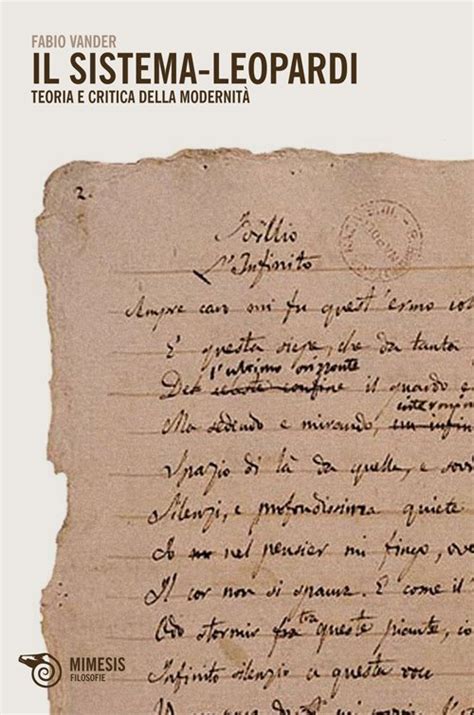 FABIO VANDER
IL SISTEMA-LEOPARDI
TEORIA E CRITICA DELLA MODERNITÀ
2.
Idillio
L'Infinito
Sempre caro mi fu quest'ermo col
E questa siepe, che da tanta
l'ultimo orizzonte
De confine il guardo e
Ma sedendo e mirando, un infin
Spazio di là da quella, e sovr
Silenzi, e profondissima quiete
Io nel pensier mi fingo, ove
Il cor non si spaura. E come il
Odo stormir fra queste piante, io
Infinito silenzio a questa voce
MIMESIS
FILOSOFIE